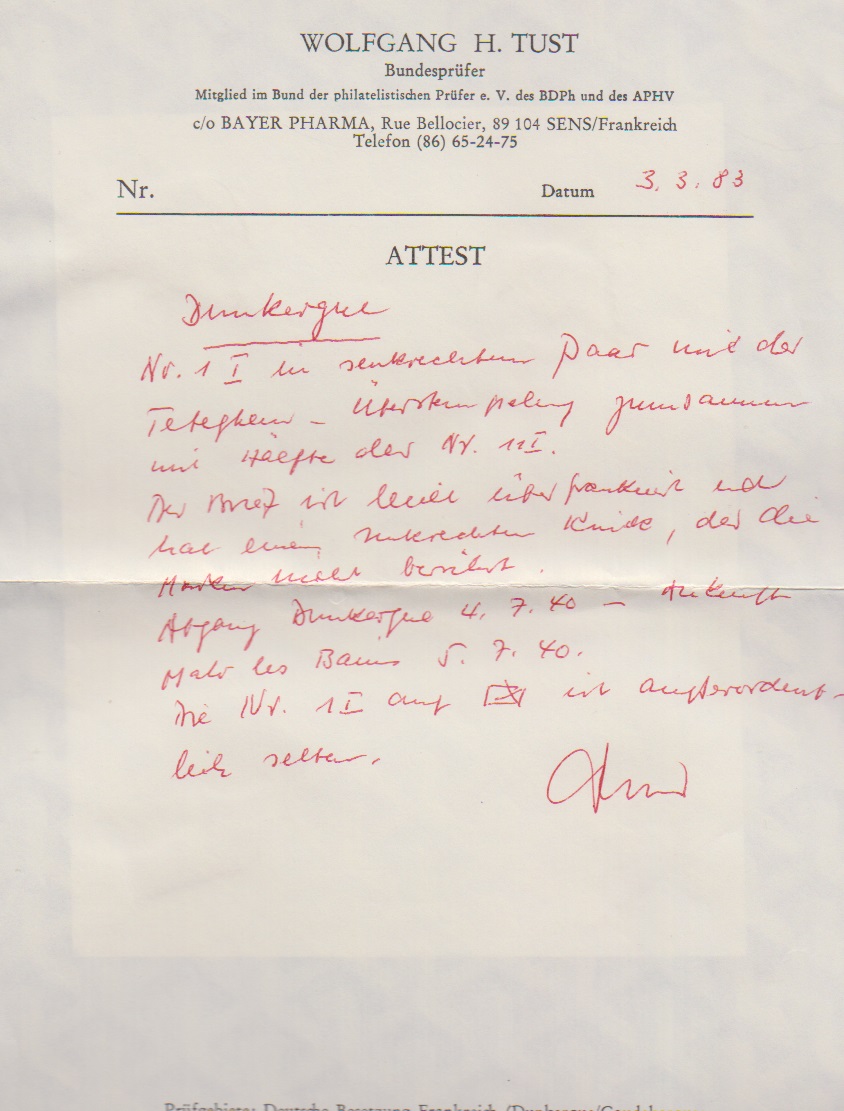 WOLFGANG H. TUST
Bundesprüfer
Mitglied im Bund der philatelistischen Prüfer e. V. des BDPh und des APHV
c/o BAYER PHARMA, Rue Bellocier, 89 104 SENS/Frankreich
Telefon (86) 65-24-75
Nr. Datum 3. 3. 83
ATTEST
Dunkergue
Nr. 1 I in senkrechtem Paar mit der
Teteghem - Überstempelung zusammen
mit Hälfte der Nr. 1 I.
Der Brief ist leicht überfrankiert und
hat einen senkrechten Knick, der die
Marken nicht berührt.
Abgang Dunkergue 4. 7. 40 - Ankunft
Malo les Bains 5. 7. 40.
Die Nr. 1 I auf ist außerordent-
lich selten.